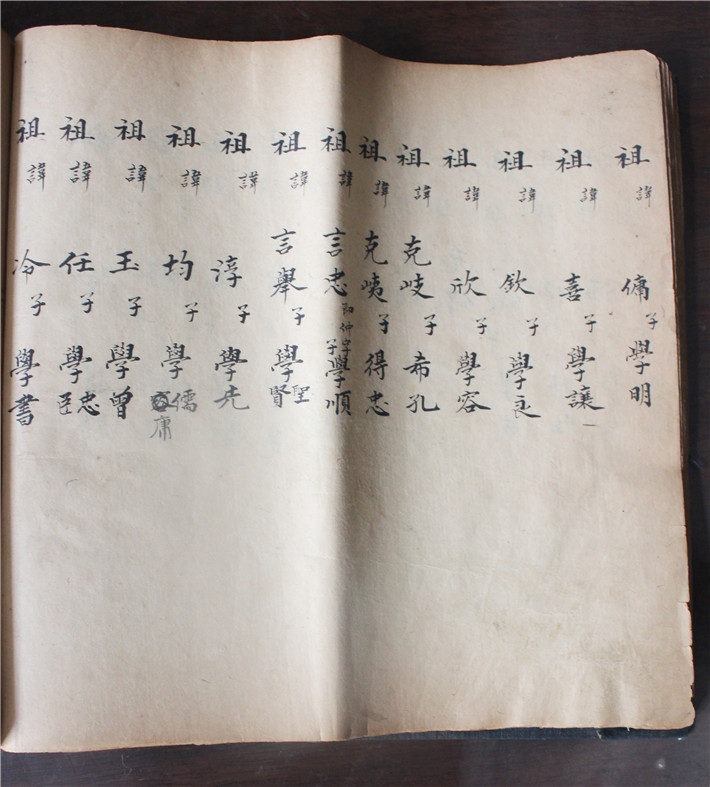 祖諱傋子學明
祖諱喜子學讓
祖諱欽子學良
祖諱欣子學容
祖諱克岐子希孔
祖諱克峓子得忠
祖諱言忠子學順
祖諱言舉子學聖賢
祖諱淳子學先
祖諱均子學儒庸
祖諱玉子學曾
祖諱任子學忠臣
祖諱冷子學書